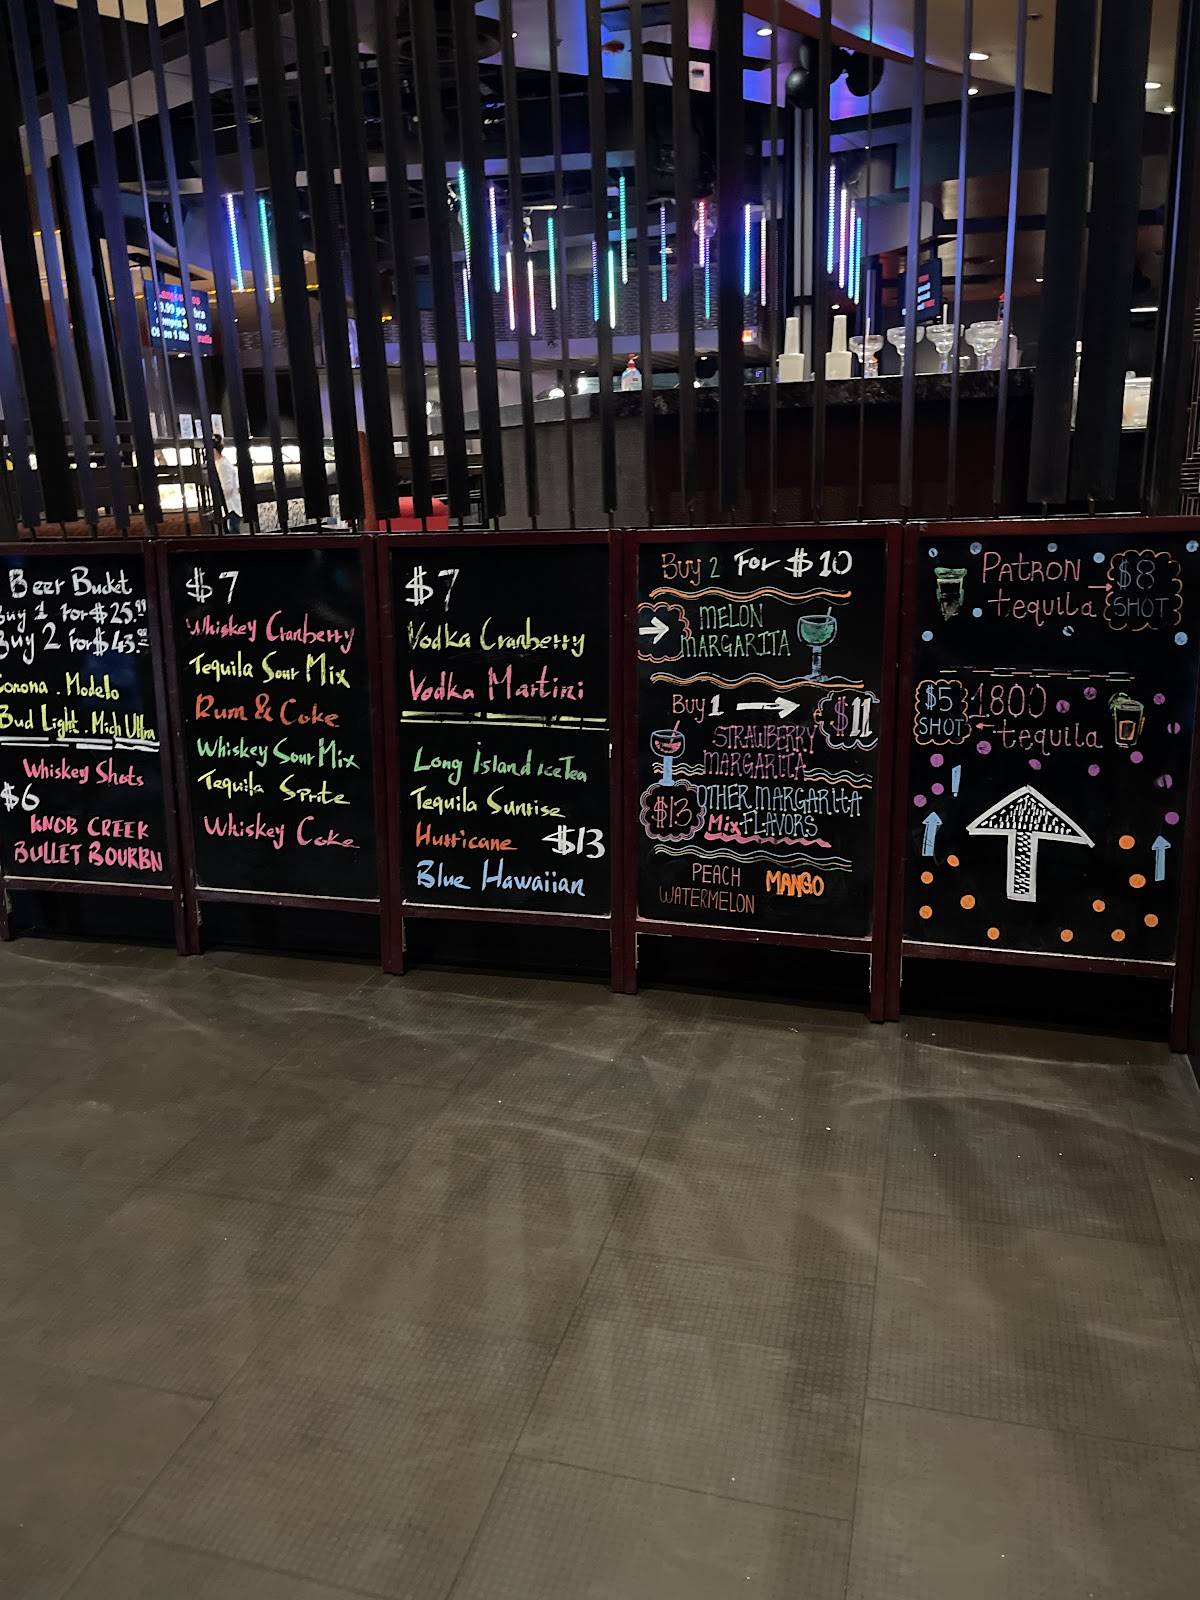 Beer Bucket
Buy 1 For $25.99
Buy 2 For $43.99
Corona . Modelo
Bud Light . Mich Ultra
Whiskey Shots
$6
KNOB CREEK
BULLET BOURBN
$7
Whiskey Cranberry
Tequila Sour Mix
Rum & Coke
Whiskey Sour Mix
Tequila Sprite
Whiskey Coke
$7
Vodka Cranberry
Vodka Martini
Long Island iceTea
Tequila Sunrise
Hurricane $13
Blue Hawaiian
Buy 2 For $10
MELON
MARGARITA
Buy 1 $11
STRAWBERRY
MARGARITA
$13 OTHER MARGARITA
Mix FLAVORS
PEACH MANGO
WATERMELON
PATRON $8
tequila SHOT
$5 1800
SHOT tequila